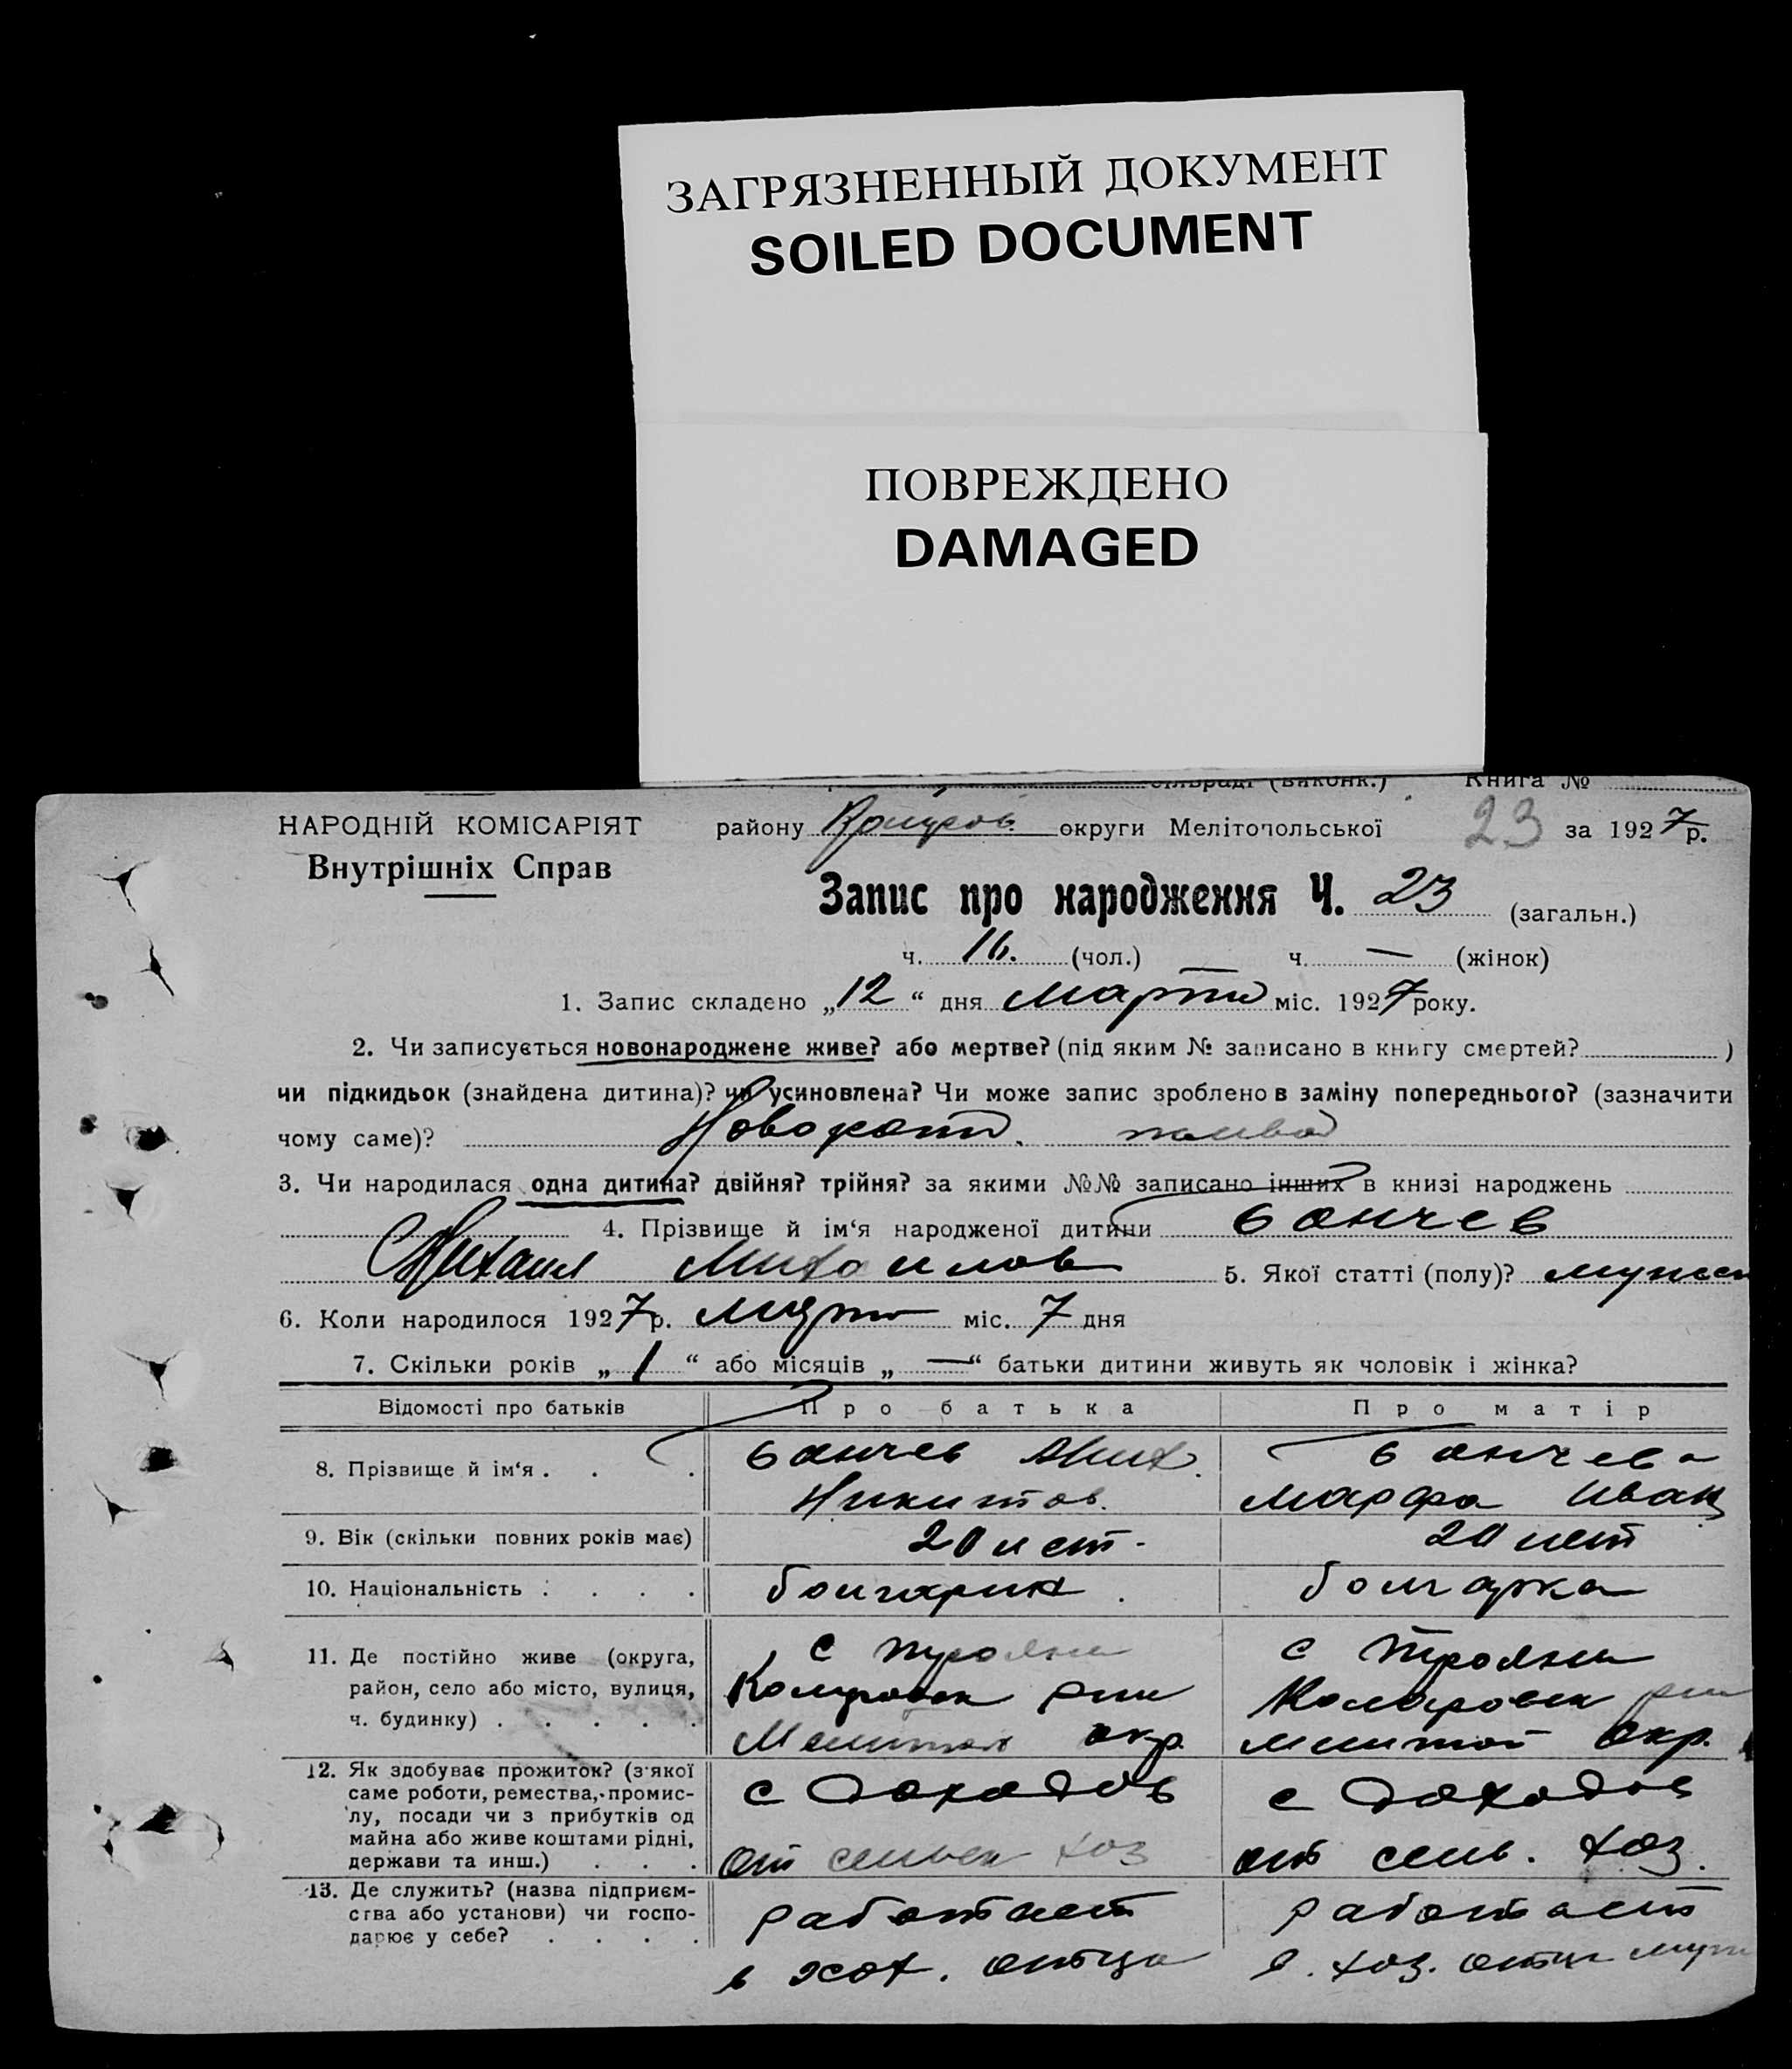 ЗАГРЯЗНЕННЫЙ ДОКУМЕНТ
SOILED DOCUMENT
ПОВРЕЖДЕНО
DAMAGED
(виконк.) Книга №
НАРОДНІЙ КОМІСАРІЯТ району округи Мелітопольської 23 за 1927 р.
Внутрішніх Справ
Запис про народження Ч. 23 (загальн.)
ч. 16. (чол.) ч. — (жінок)
1. Запис складено „12“ дня Марта міс. 1927 року.
2. Чи записується новонароджене живе? або мертве? (під яким № записано в книгу смертей? )
чи підкидьок (знайдена дитина)? чи усиновлена? Чи може запис зроблено в заміну попереднього? (зазначити
чому саме)?
3. Чи народилася одна дитина? двійня? трійня? за якими №№ записано інших в книзі народжень
4. Прізвище й ім‘я народженої дитини Банчев
Михаил Михаилов 5. Якої статті (полу)? мужск
6. Коли народилося 1927 р. март міс. 7 дня
7. Скільки років „1“ або місяців „—“ батьки дитини живуть як чоловік і жінка?
Відомості про батьків Про батька Про матір
8. Прізвище й ім‘я . . . Банчев Мих. Банчева
Никитов. Марфа Иван
9. Вік (скільки повних років має) 20 лет. 20 лет
10. Національність . . . . болгарин. болгарка
11. Де постійно живе (округа, с Трояны с Трояны
район, село або місто, вулиця, рн рн
ч. будинку) . . . . . Мелитоп окр. мелитоп окр.
12. Як здобуває прожиток? (з якої
саме роботи, ремества, промис- с доходов с доходов
лу, посади чи з прибутків од
майна або живе коштами рідні,
держави та инш.) . . . от сельск хоз от сель. хоз.
13. Де служить? (назва підприєм-
ства або установи) чи госпо- работает работает
дарює у себе? . . . .
в хоз. отца в. хоз. отца мужа